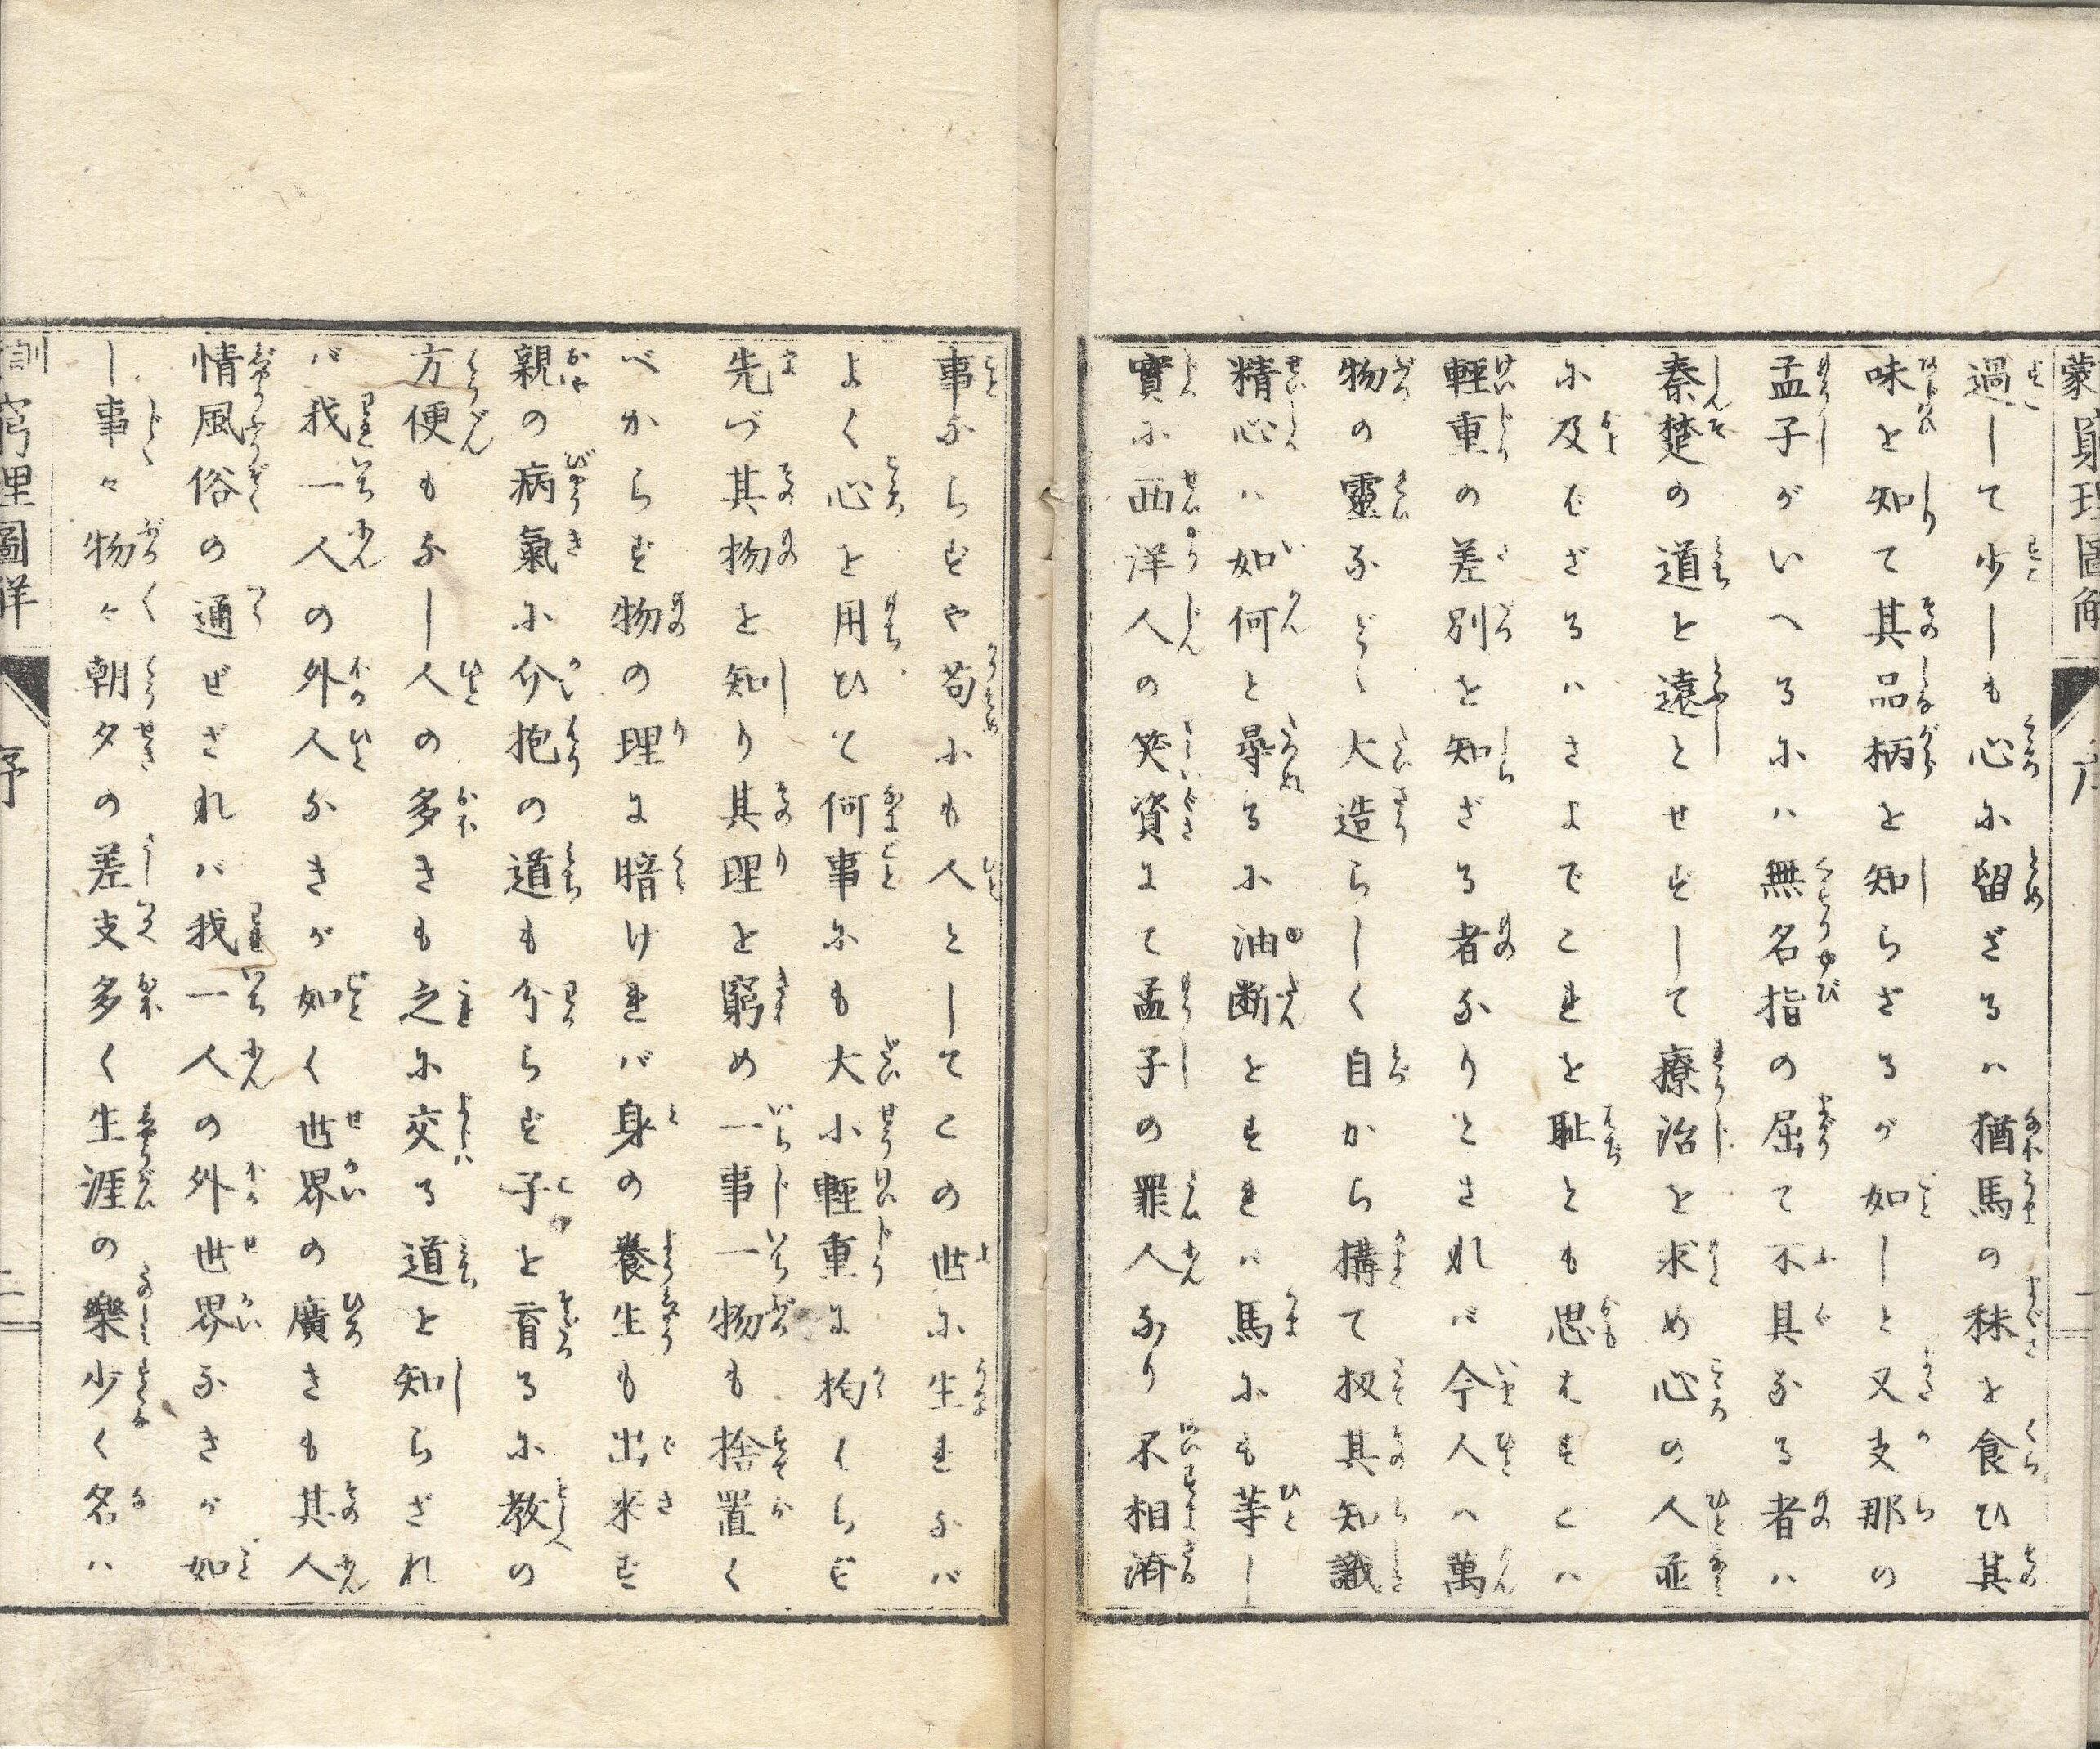 過して少しも心に留ざるハ猶馬の秣を食ひ其
味を知て其品柄を知らざるが如しと又支那の
孟子がいへるにハ無名指の屈て不具なる者ハ
秦楚の道を遠とせずして療治を求め心の人並
に及ばざるハさまでこれを耻とも思はずとハ
輕重の差別を知ざる者なりとされバ今人ハ萬
物の靈など〻大造らしく自から構て扨其知識
精心ハ如何と尋るに油断をすれハ馬にも等し
實に西洋人の笑資にて孟子の罪人なり不相濟
事ならずや苟にも人としてこの世に生れなバ
よく心を用ひて何事にも大小輕重に拘ハらず
先づ其物を知り其理を窮め一事一物も捨置く
べからず物の理に暗ければ身の養生も出来ず
親の病氣に介抱の道も分らず子を育るに教の
方便もなし人の多きも之に交る道を知らざれ
バ我一人の外人なきが如く世界の廣きも其人
情風俗の通ぜざれハ我一人の外世界なきが如
し事々物々朝夕の差支多く生涯の樂少く名ハ